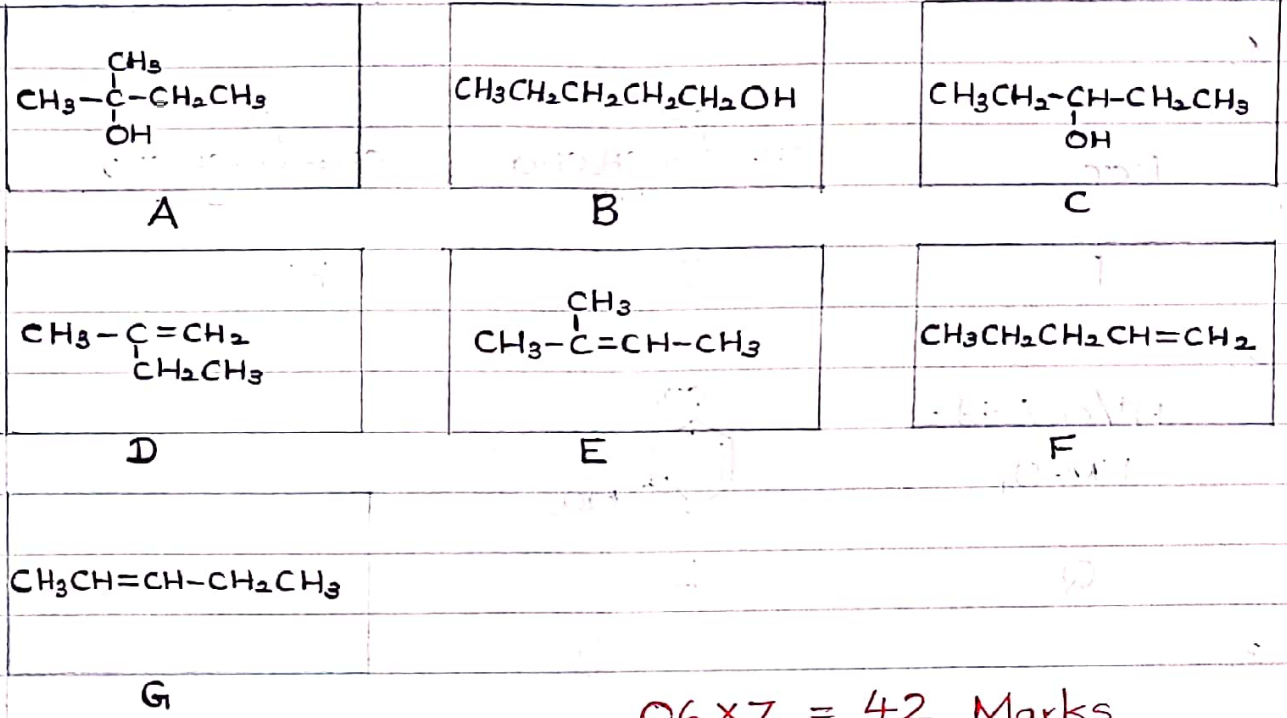 CH₃
CH₃-C-CH₂CH₃
OH
A
CH₃CH₂CH₂CH₂CH₂OH
B
CH₃CH₂-CH-CH₂CH₃
OH
C
CH₃-C=CH₂
CH₂CH₃
D
CH₃
CH₃-C=CH-CH₃
E
CH₃CH₂CH₂CH=CH₂
F
CH₃CH=CH-CH₂CH₃
G
06 x 7 = 42 Marks